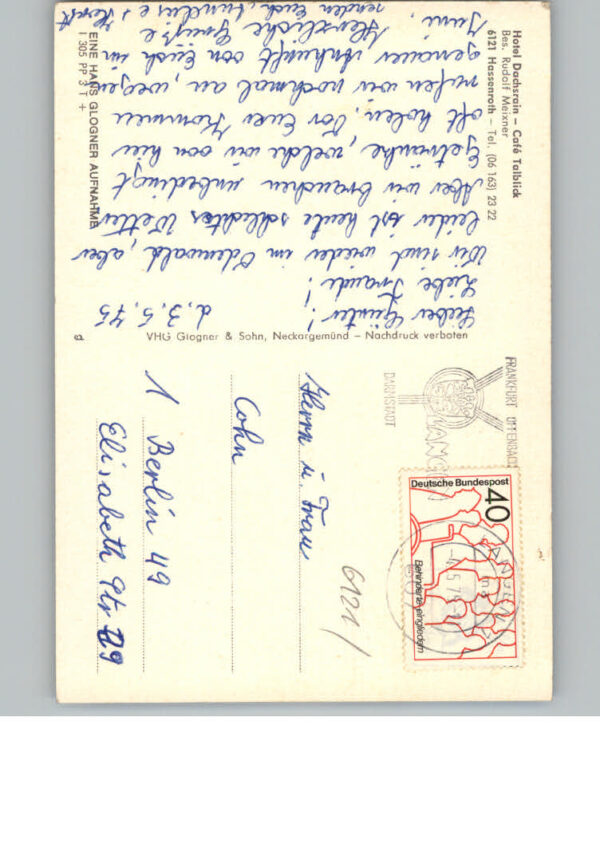 Hotel Dachsrain – Café Talblick
Bes. Rudolf Meixner
6121 Hassenroth – Tel. (06 163) 23 22
d. 3.5.75
Lieber Günter!
Liebe Traude!
Wir sind wieder im Odenwald, aber
leider ist heute schlechtes Wetter
Aber wir brauchen unbedingt
Getränke, welche wir von hier
oft holen. Vor Euer Kommen
rufen wir nochmal an, wegen
genauer Ankunft von Euch im
Juni. Herzliche Grüsse
senden Euch,
EINE HANS GLOGNER AUFNAHME
1 305 PP 3 T +
VHG Glogner & Sohn, Neckargemünd – Nachdruck verboten
FRANKFURT OFFENBACH
DARMSTADT
Deutsche Bundespost
40
Behinderte eingliedern
6121/
Herrn u. Frau
Cohn
1 Berlin 49
Elisabeth Str 29